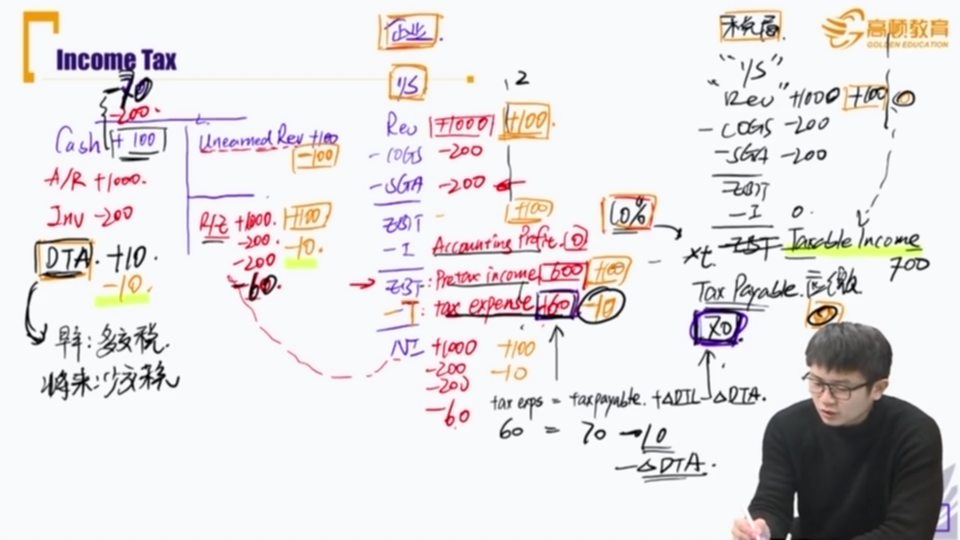 Income Tax
高顿教育
GOLDEN EDUCATION
企业
税局
I/S
1 2
"I/S"
-70
-200.
Cash +100
Unearned Rev +100
-100
A/R +1000.
Inv -200
R/E +1000. +100
-200. -10.
-200
-60.
DTA. +10.
-10.
早: 多交税.
将来: 少交税
Rev +1000 +100.
- COGS -200
- SGA -200
EBIT - +100
- I Accounting Profit. 0
EBT: Pretax income 600 +100
- T: tax expense -60 -10
NI +1000 +100
-200 -10
-200
-60
10%
Rev +1000 +100 0
- COGS -200
- SGA -200
EBIT
- I 0.
EBT Taxable Income
xt 700
Tax Payable. 应缴 0
70
tax exps = tax payable. + ΔDTL - ΔDTA.
60 = 70 - 10
- ΔDTA.